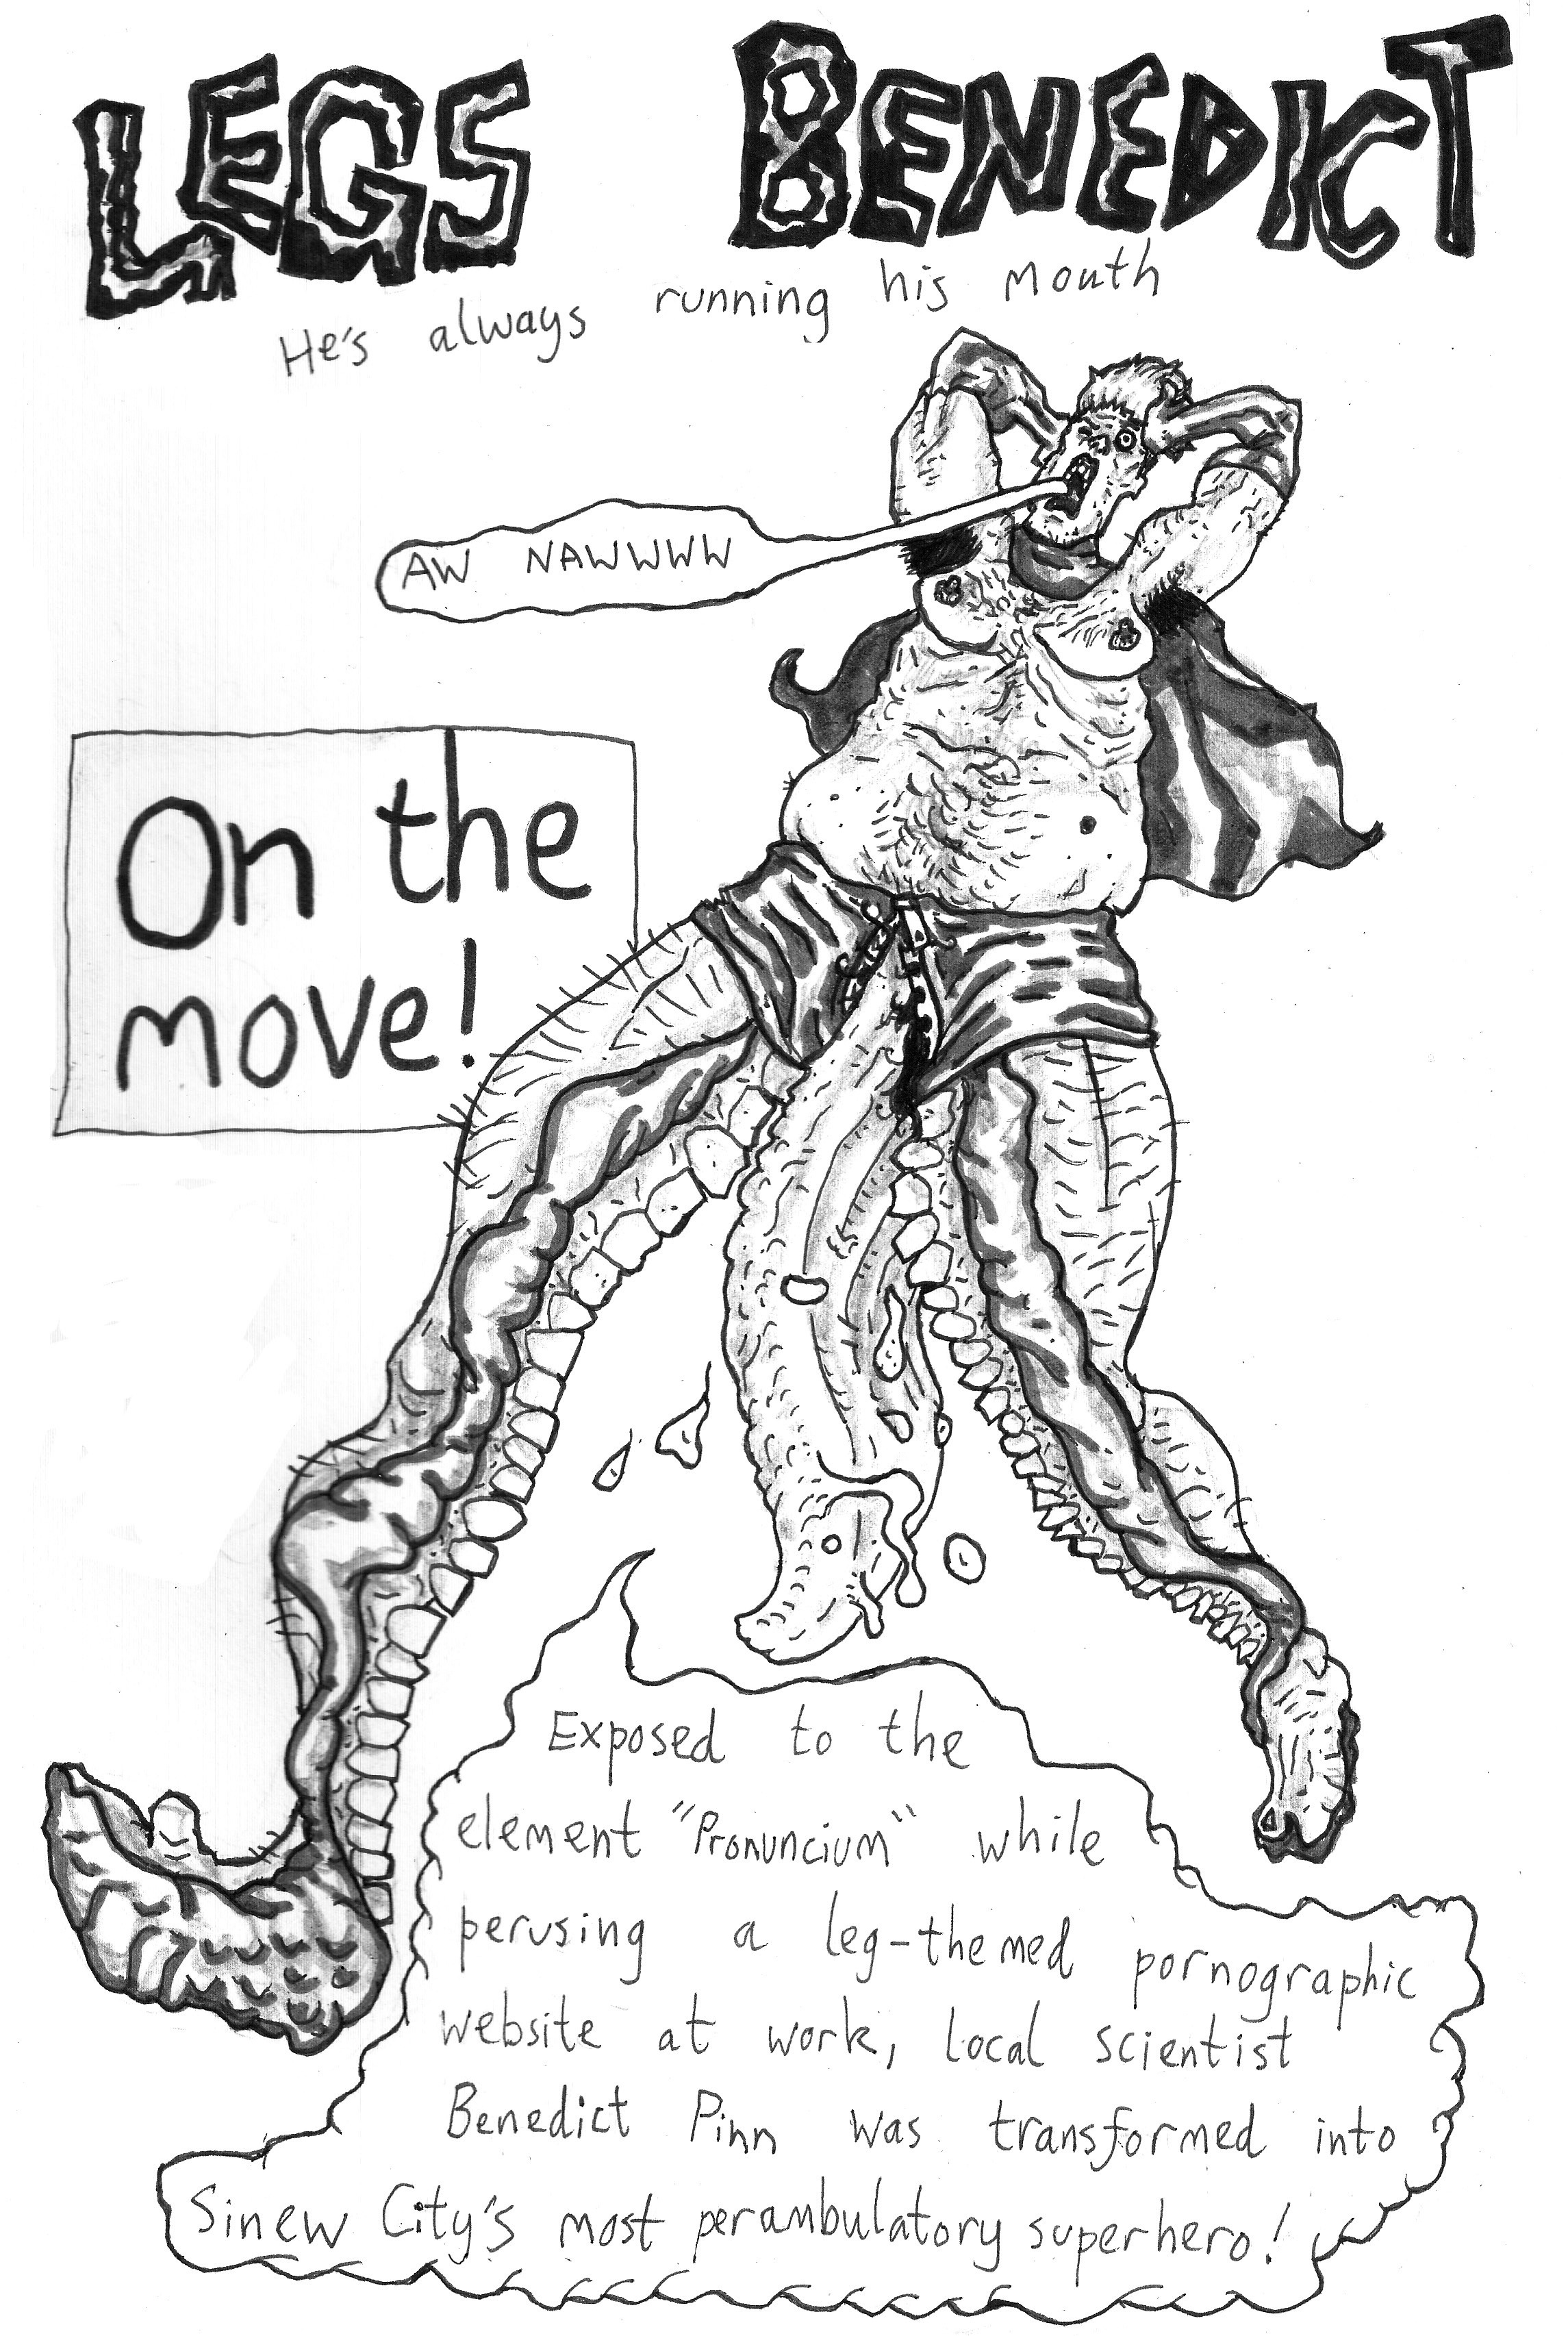 LEGS BENEDICT
He's always running his mouth
AW NAWWWW
On the
move!
Exposed to the
element "Pronuncium" while
perusing a leg-themed pornographic
website at work, local scientist
Benedict Pinn was transformed into
Sinew City's most perambulatory superhero!